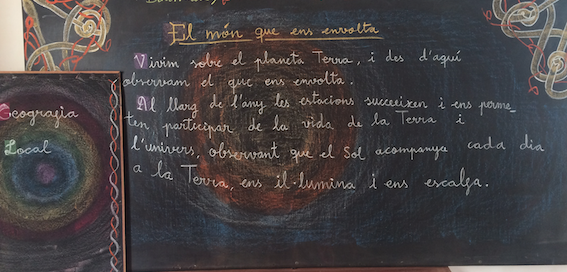 El món que ens envolta
Vivim sobre el planeta Terra, i des d'aquí
observam el que ens envolta.
Al llarg de l'any les estacions succeeixen i ens perme_
ten participar de la vida de la Terra i
l'univers, observant que el Sol acompanya cada dia
a la Terra, ens il·lumina i ens escalfa.
Geografia
Local